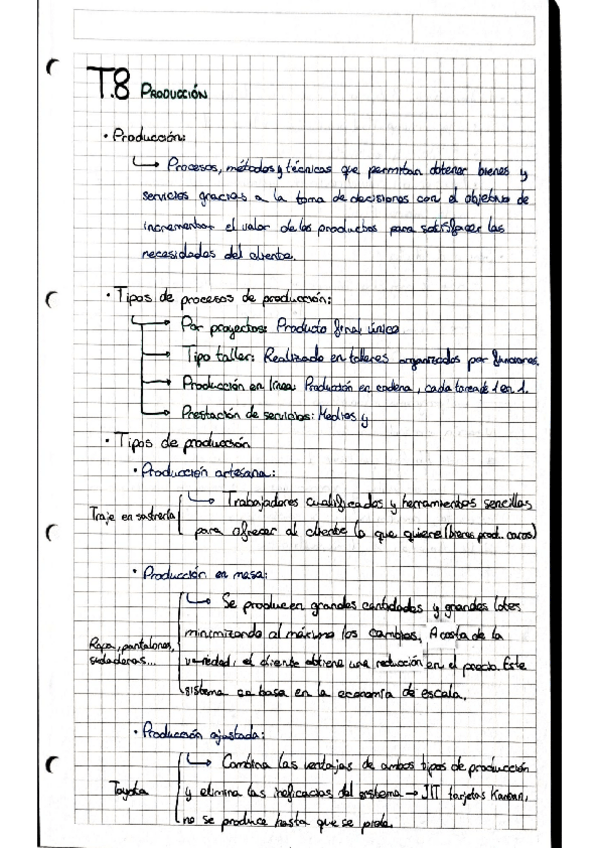 T.8 PRODUCCIÓN
• Producción:
↳ Procesos, métodos y técnicas que permitan obtener bienes y
servicios gracias a la toma de decisiones con el objetivo de
incrementar el valor de los productos para satisfacer las
necesidades del cliente.
• Tipos de procesos de producción:
→ Por proyectos: Producto final único.
→ Tipo taller: Realizado en talleres organizados por funciones.
→ Producción en línea: Producción en cadena, cada tarea de 1 en 1.
→ Prestación de servicios: Medios y
• Tipos de producción
• Producción artesana:
↳ Trabajadores cualificados y herramientas sencillas
Traje en sastrería
para ofrecer al cliente lo que quiere (bienes prod. caros)
• Producción en masa:
↳ Se producen grandes cantidades y grandes lotes
minimizando al máximo los cambios. A costa de la
Ropa, pantalones,
sudaderas...
variedad, el cliente obtiene una reducción en el precio. Este
sistema se basa en la economía de escala.
• Producción ajustada:
↳ Combina las ventajas de ambos tipos de producción
Toyota
y elimina las ineficacias del sistema → JIT tarjetas Kanban,
no se produce hasta que se pide.